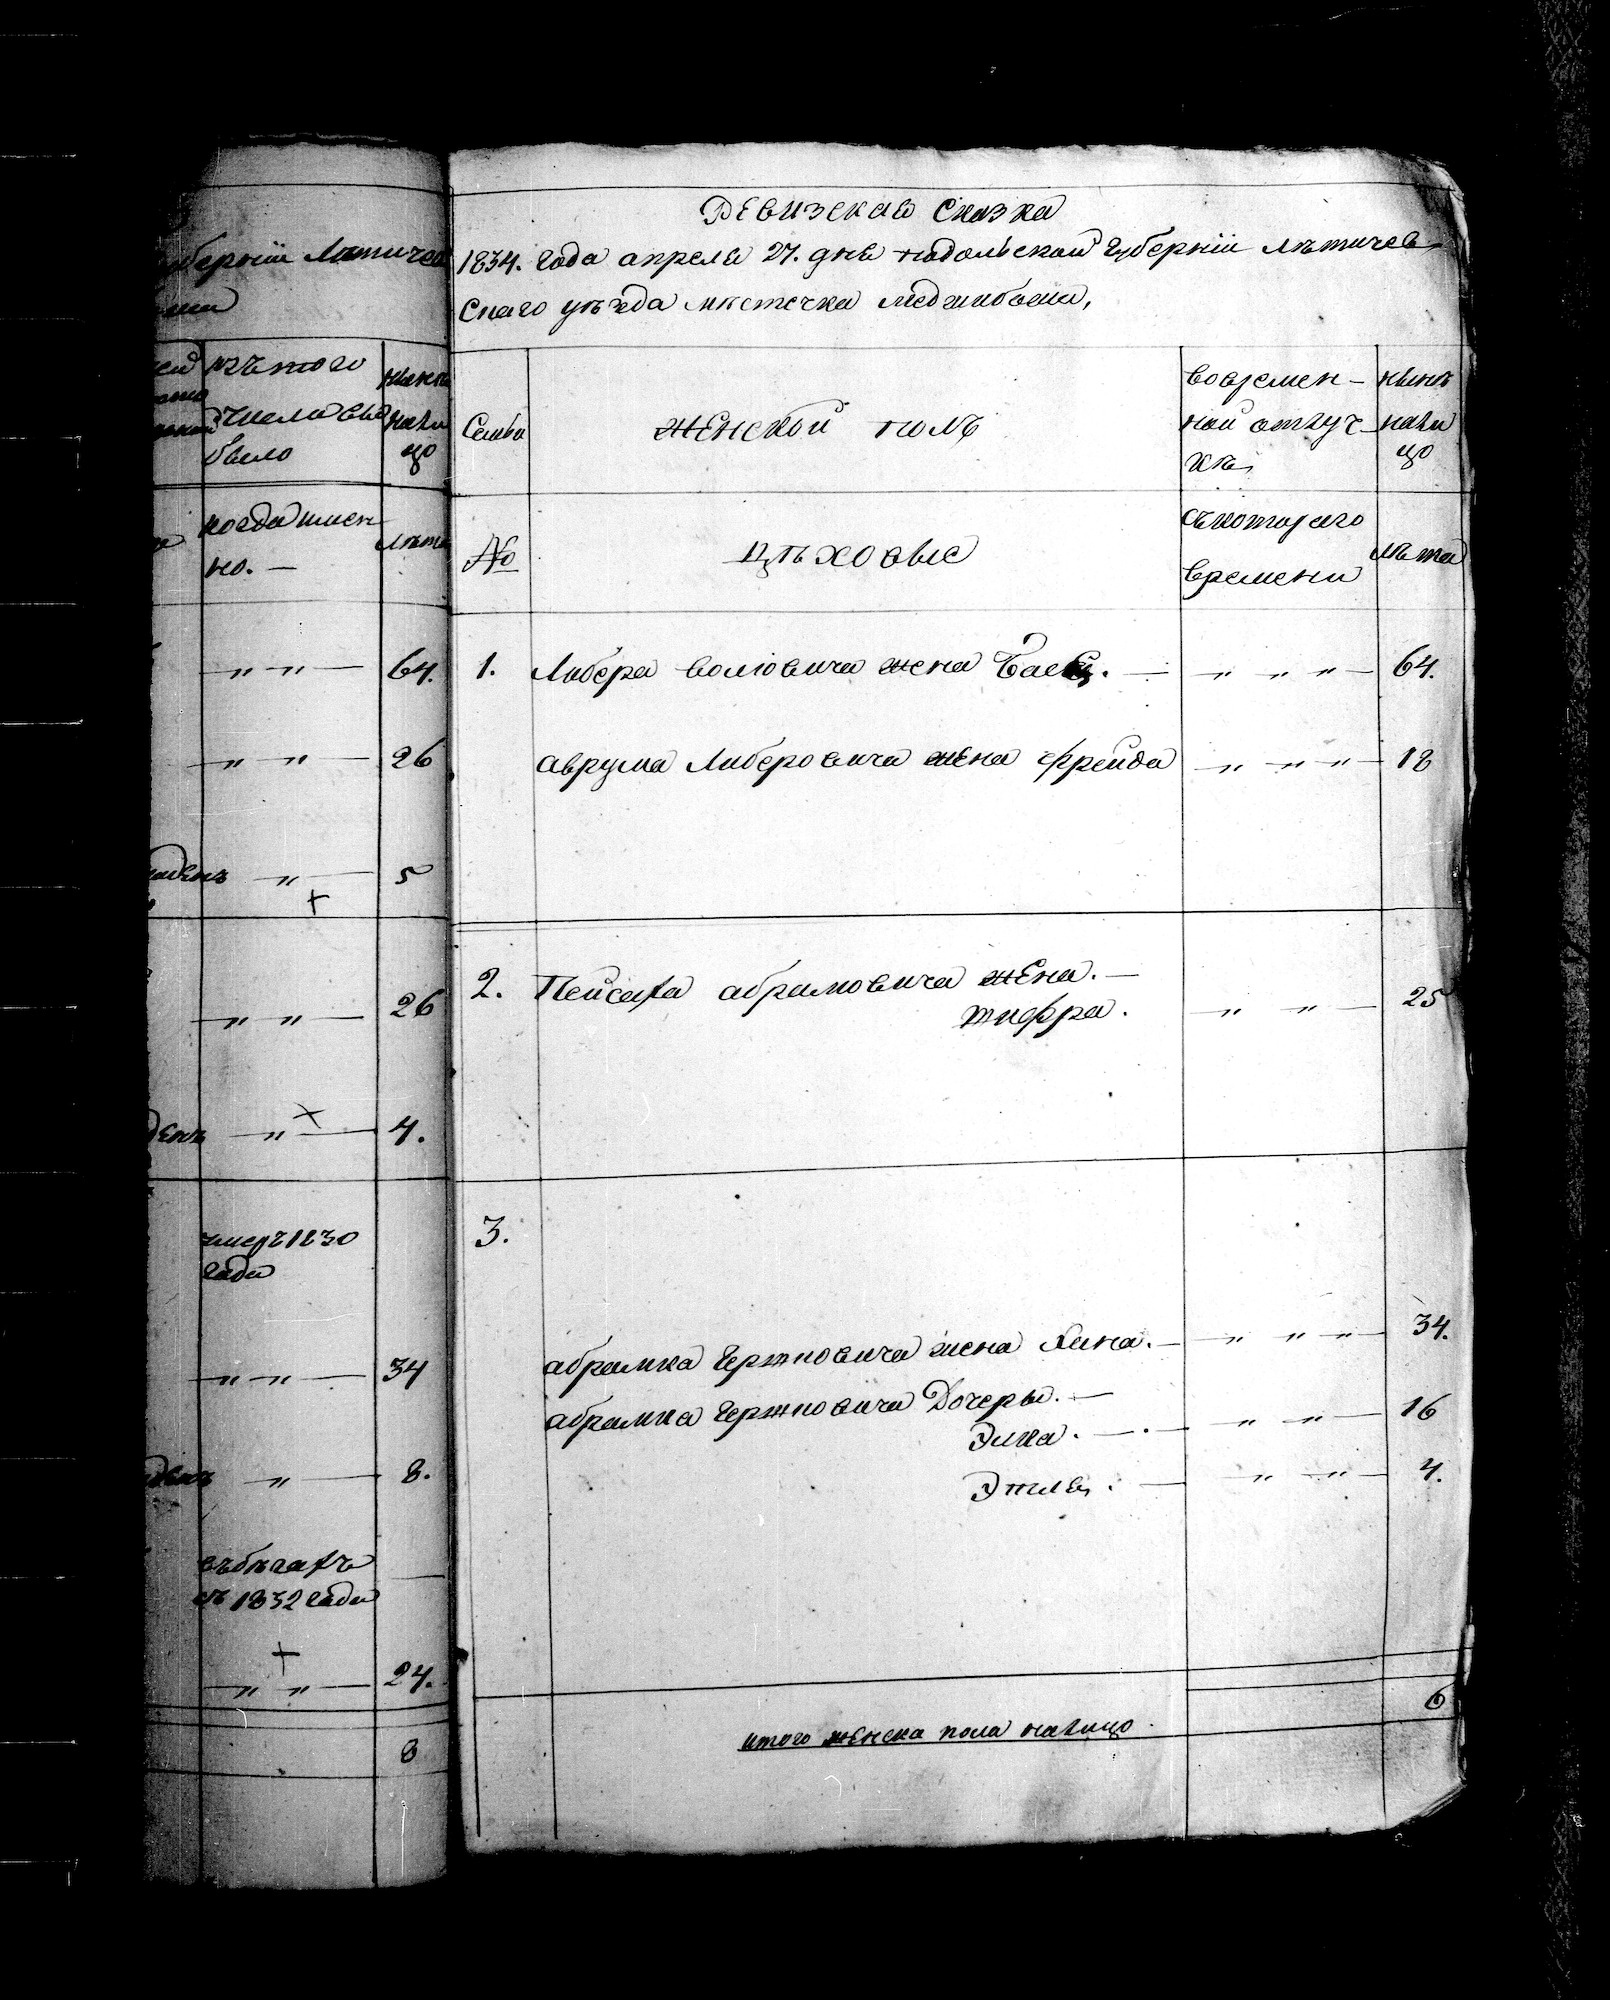 губерніи Лѣтичев
изъ того
числа вы
было
нынѣ
нали
цо
когда имен
но. —
лѣта
„ „ — 64.
„ „ — 26
„ — 5
„ „ — 26
„ — 4.
умеръ 1830
года
„ „ — 34
„ — 8.
въ 1832 года
„ „ — 24.
8
Ревизская Сказка
1834. года апреля 27. дня подольской губерніи лѣтичев
скаго уѣзда мѣстечка меджибожа,
Семья
женской полъ
вовремен—
ной отлуч—
кѣ
нынѣ
нали
цо
№
цѣховые
съкотораго
времени
лѣта
1. Либера волковича жена Бася. — „ „ „ — 64.
аврума Либеровича жена Фрейда „ „ „ — 18
2. Пейсаха абрамовича жена. —
шифра. „ „ — 25
3.
абрамка гершковича жена Хана. — „ „ „ — 34.
абрамка гершковича Дочеры. —
Элка. — „ „ — 16
Этля. — „ „ — 4.
6
итого женска пола налицо.